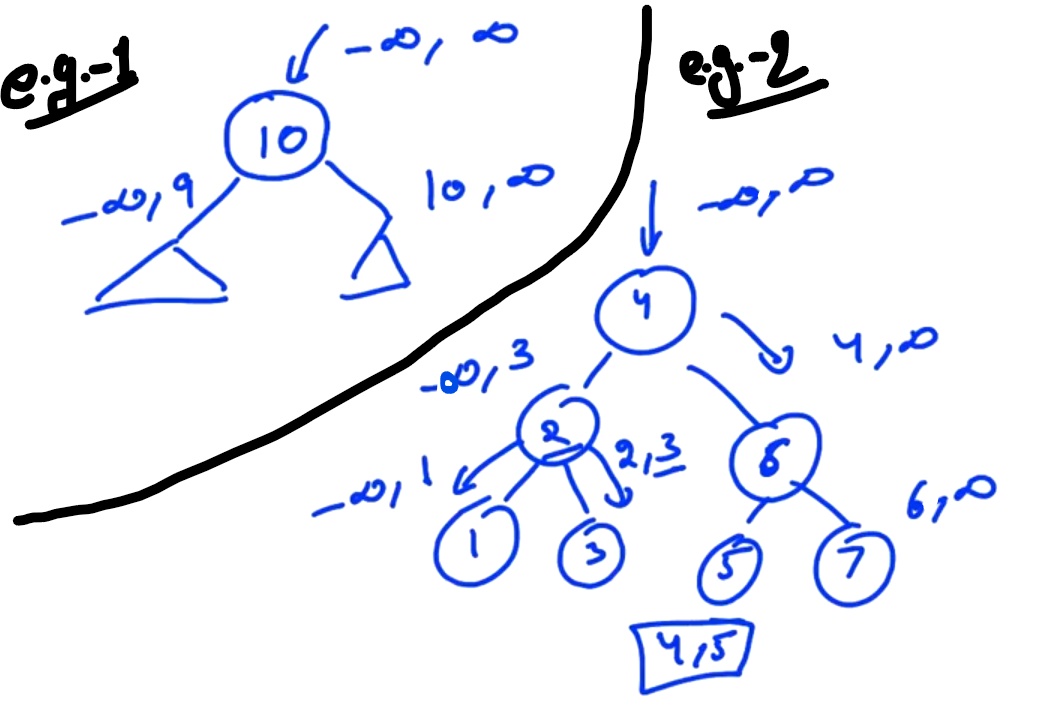 e.g.-1
-∞, ∞
10
-∞, 9
10, ∞
e.g-2
-∞, ∞
4
-∞, 3
4, ∞
2
2, 3
6
-∞, 1
6, ∞
1
3
5
7
4, 5